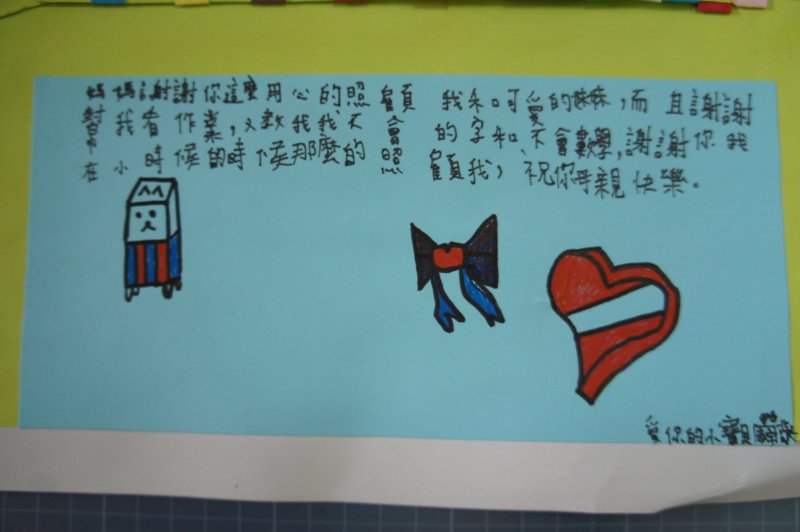 媽媽謝謝你這麼用心的照顧 我和可愛的妹妹,而且謝謝
幫我看作業,又教我我不會 的字和不會數學,謝謝你我
在小時候的時候那麼的照 顧我,祝你母親快樂。
愛你的小寶貝